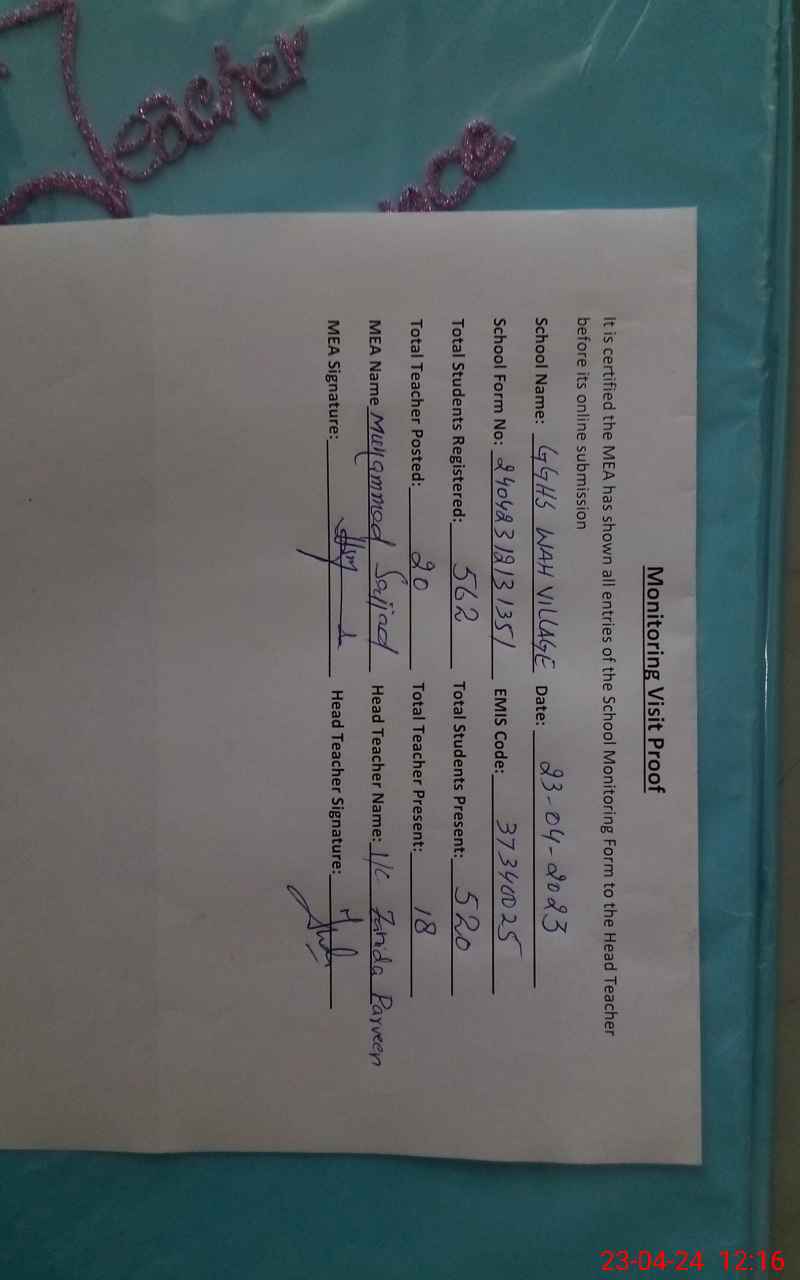 Teacher
nce
Monitoring Visit Proof
It is certified the MEA has shown all entries of the School Monitoring Form to the Head Teacher
before its online submission
School Name: GGHS WAH VILLAGE Date: 23-04-2023
School Form No: 24042312131351 EMIS Code: 37340025
Total Students Registered: 562 Total Students Present: 520
Total Teacher Posted: 20 Total Teacher Present: 18
MEA Name Muhammad Sajjad Head Teacher Name: I/C Farida Parveen
MEA Signature: Head Teacher Signature:
23-04-24 12:16